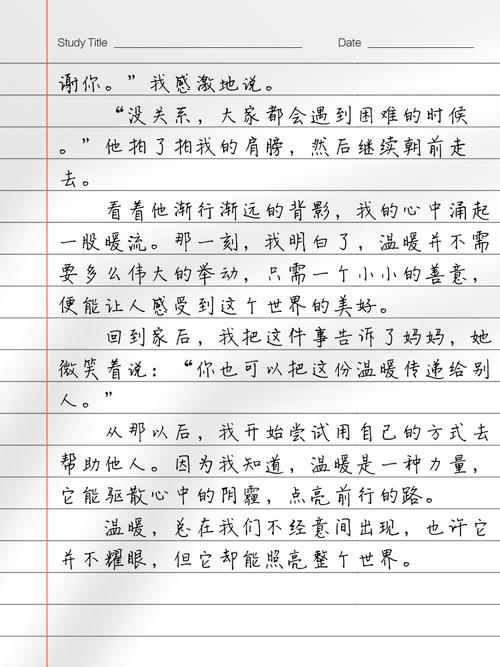 Study Title Date
谢你。”我感激地说。
“没关系，大家都会遇到困难的时候
。”他拍了拍我的肩膀，然后继续朝前走
去。
看着他渐行渐远的背影，我的心中涌起
一股暖流。那一刻，我明白了，温暖并不需
要多么伟大的举动，只需一个小小的善意，
便能让人感受到这个世界的美好。
回到家后，我把这件事告诉了妈妈，她
微笑着说：“你也可以把这份温暖传递给别
人。”
从那以后，我开始尝试用自己的方式去
帮助他人。因为我知道，温暖是一种力量，
它能驱散心中的阴霾，点亮前行的路。
温暖，总在我们不经意间出现，也许它
并不耀眼，但它却能照亮整个世界。